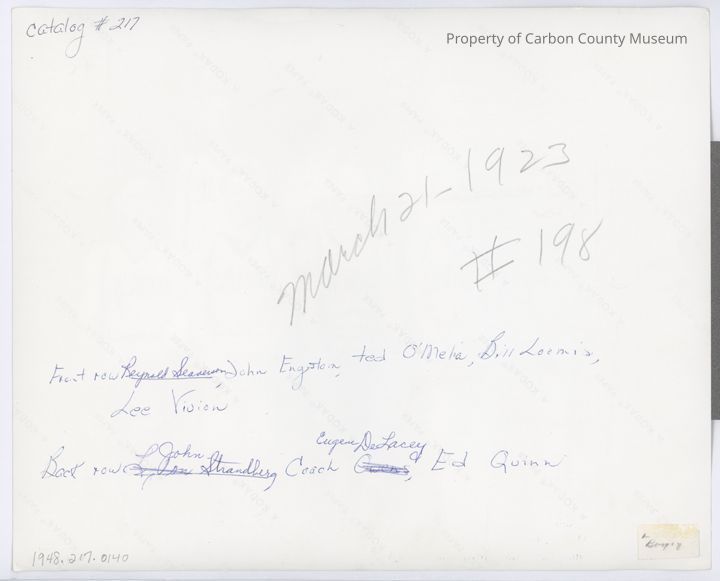 Catalog # 217
Property of Carbon County Museum
March 21-1923
# 198
Front row Reynold Seaverson, John Engstrom, ted O'Melia, Bill Loomis,
Lee Vivion
Eugene DeLacey
John
Back row Strandberg, Coach Ed Quinn
1948.217.0140